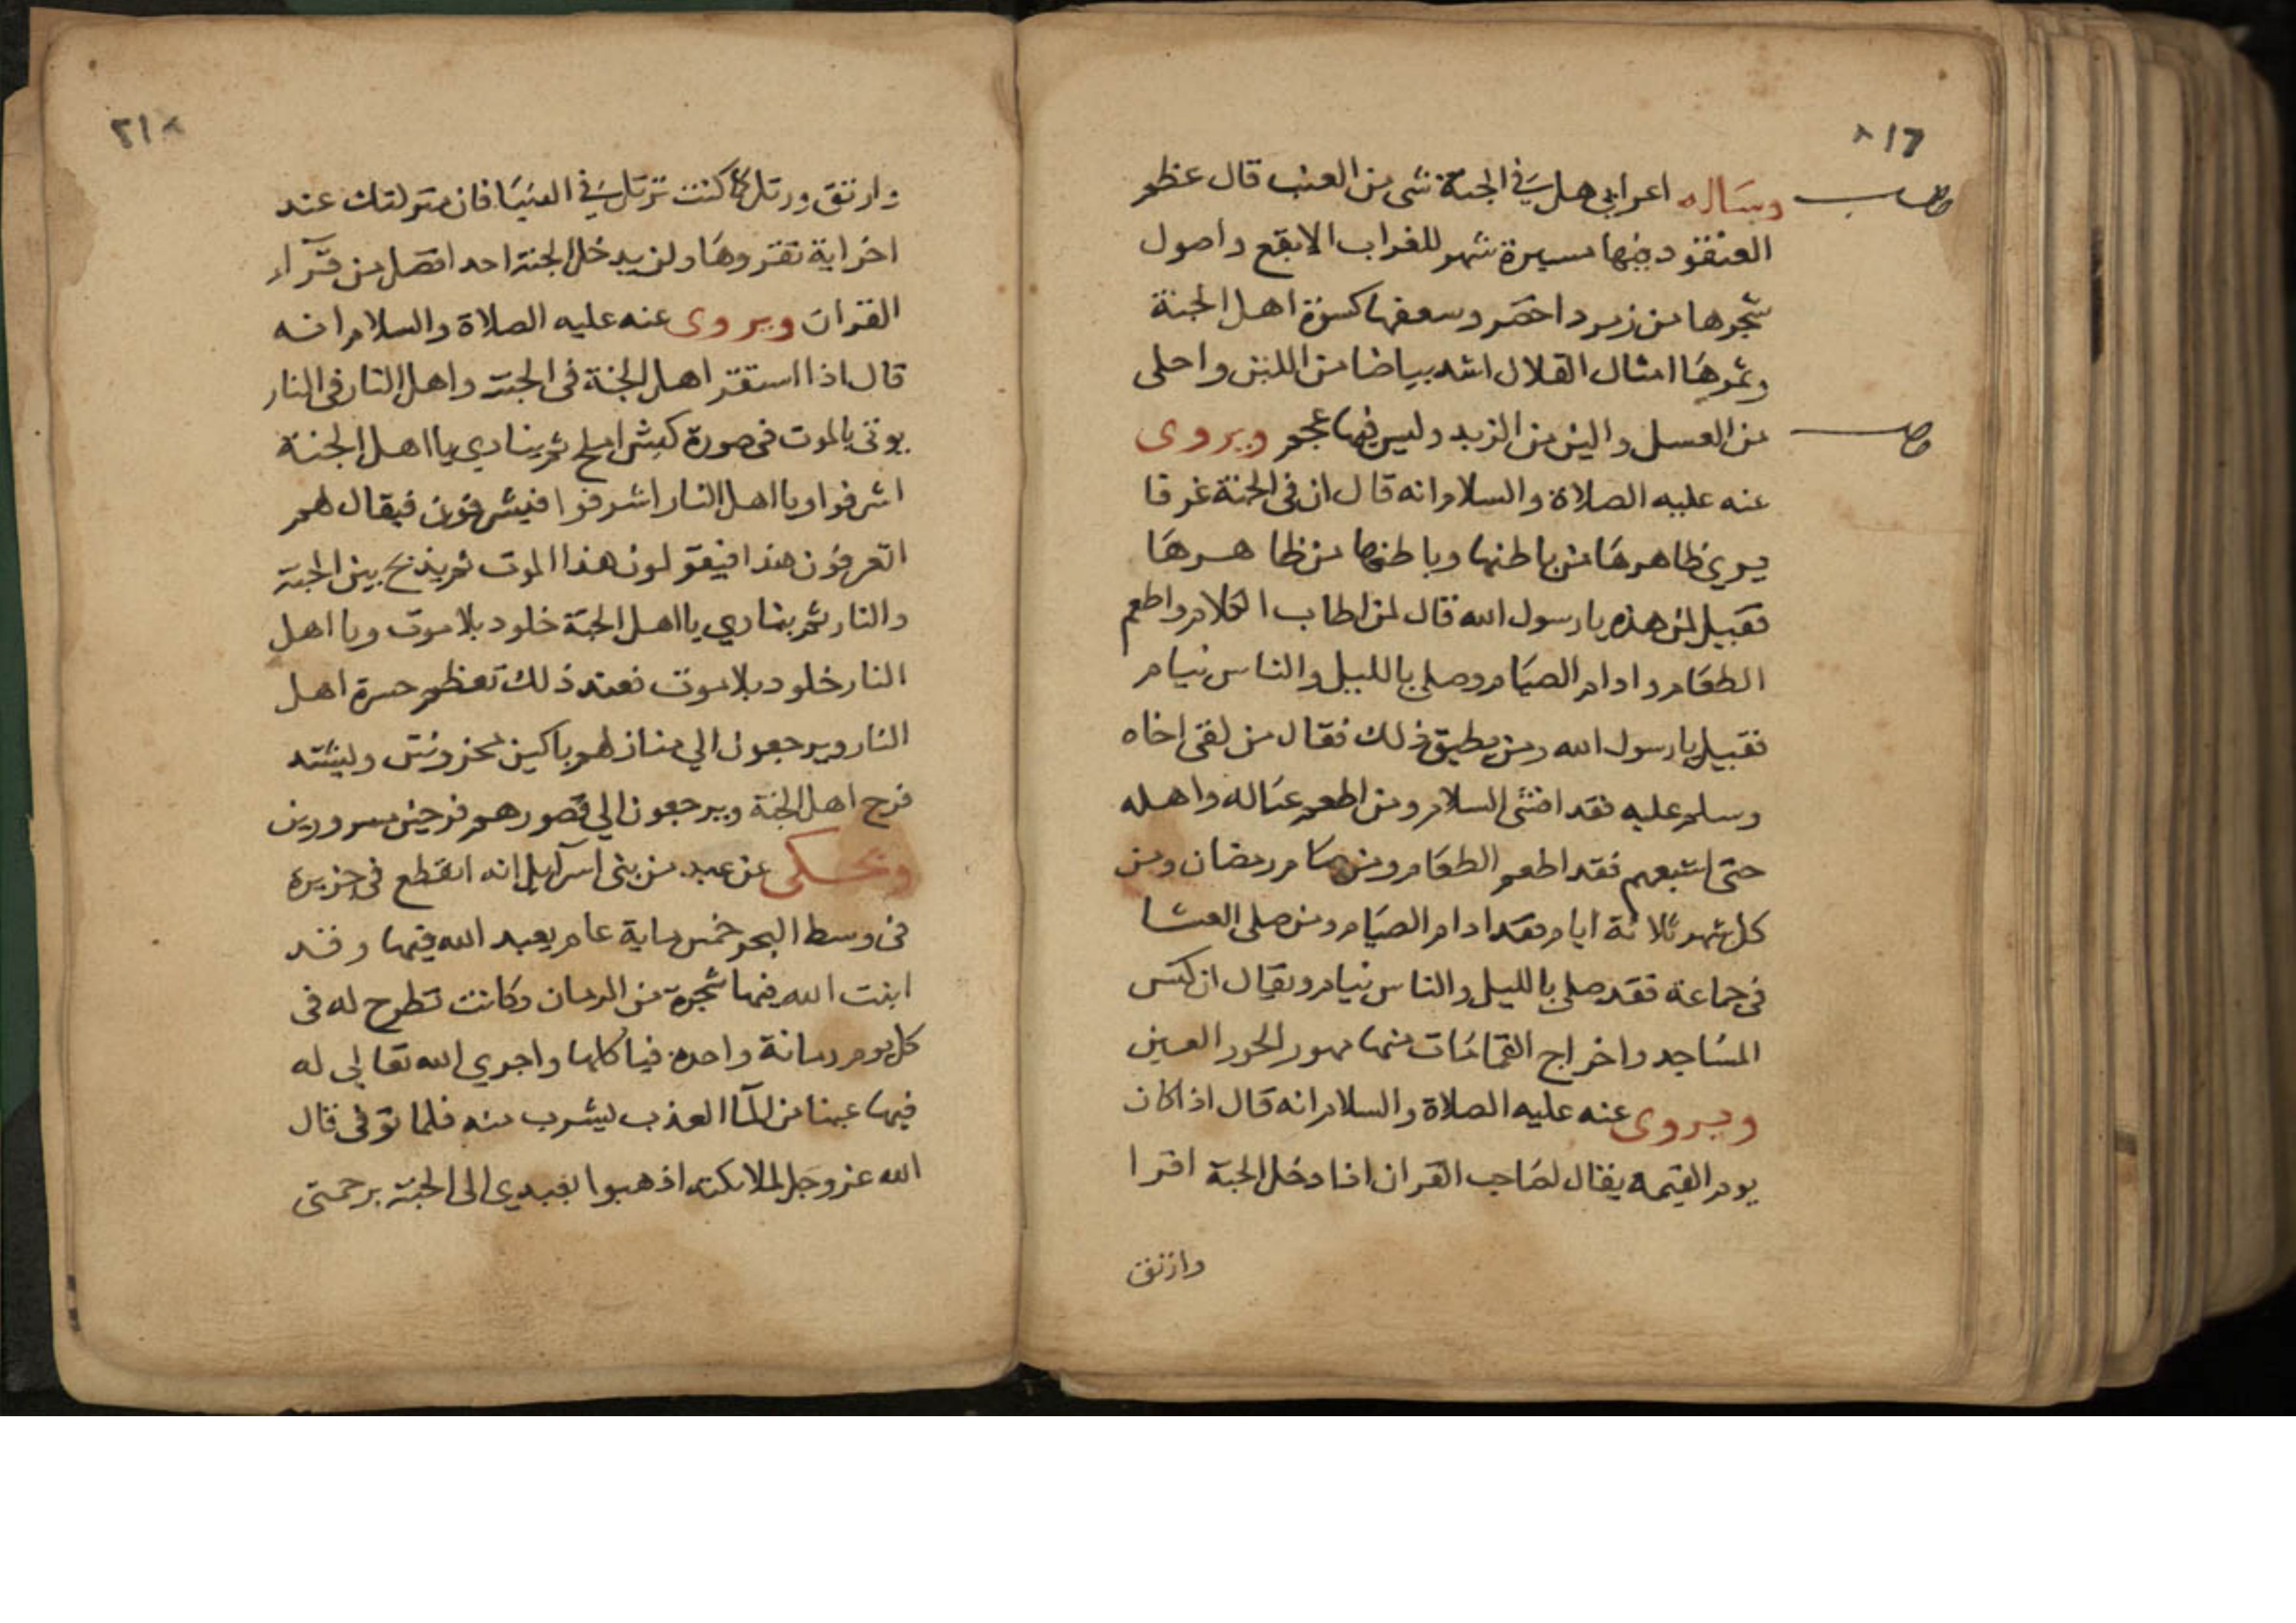 وساله اعرابي هل في الجنة شي من العنب قال عظم
العنقود منها مسيرة شهر للغراب الابقع واصول
شجرها من زمرد اخضر وسعفها كسوة اهل الجنة
وثمرها امثال القلال اشد بياضا من اللبن واحلى
من العسل والين من الزبد وليس فيها عجم ويروى
عنه عليه الصلاة والسلام انه قال ان في الجنة غرفا
يري ظاهرها من باطنها وباطنها من ظاهرها
فقيل لمن هذه يا رسول الله قال لمن اطاب الكلام واطعم
الطعام وادام الصيام وصلي بالليل والناس نيام
فقيل يا رسول الله ومن يطيق ذلك فقال من لقى اخاه
وسلم عليه فقد افشى السلام ومن اطعم عياله واهله
حتى اشبعهم فقد اطعم الطعام ومن صام رمضان ومن
كل شهر ثلاثة ايام فقد ادام الصيام ومن صلى العشا
في جماعة فقد صلي بالليل والناس نيام ويقال ان كنس
المساجد واخراج القمامات منها مهور الحور العين
ويروى عنه عليه الصلاة والسلام انه قال اذا كان
يوم القيمه يقال لصاحب القران اذا دخل الجنة اقرا
وارتق
٢١٨
وارتق ورتل كما كنت ترتل في الدنيا فان منزلتك عند
اخر اية تقروها ولن يدخل الجنة احد افضل من قرآء
القران ويروى عنه عليه الصلاة والسلام انه
قال اذا استقر اهل الجنة في الجنة واهل النار في النار
يوتى بالموت في صورة كبش املح ثم ينادي يا اهل الجنة
اشرفوا ويا اهل النار اشرفوا فيشرفون فيقال لهم
اتعرفون هذا فيقولون هذا الموت ثم يذبح بين الجنة
والنار ثم ينادي يا اهل الجنة خلود بلا موت ويا اهل
النار خلود بلا موت فعند ذلك تعظم حسرة اهل
النار ويرجعون الي منازلهم باكين محزونين ويشتد
فرح اهل الجنة ويرجعون الي قصورهم فرحين مسرورين
ويحكى عن عبد من بنى اسرآيل انه انقطع في جزيرة
في وسط البحر خمس ماية عام يعبد الله فيها وقد
انبت الله فيها شجرة من الرمان وكانت تطرح له في
كل يوم رمانة واحدة فياكلها واجري الله تعالي له
فيها عينا من المآ العذب ليشرب منه فلما توفى قال
الله عز وجل للملايكته اذهبوا بعبدي الى الجنة برحمتى